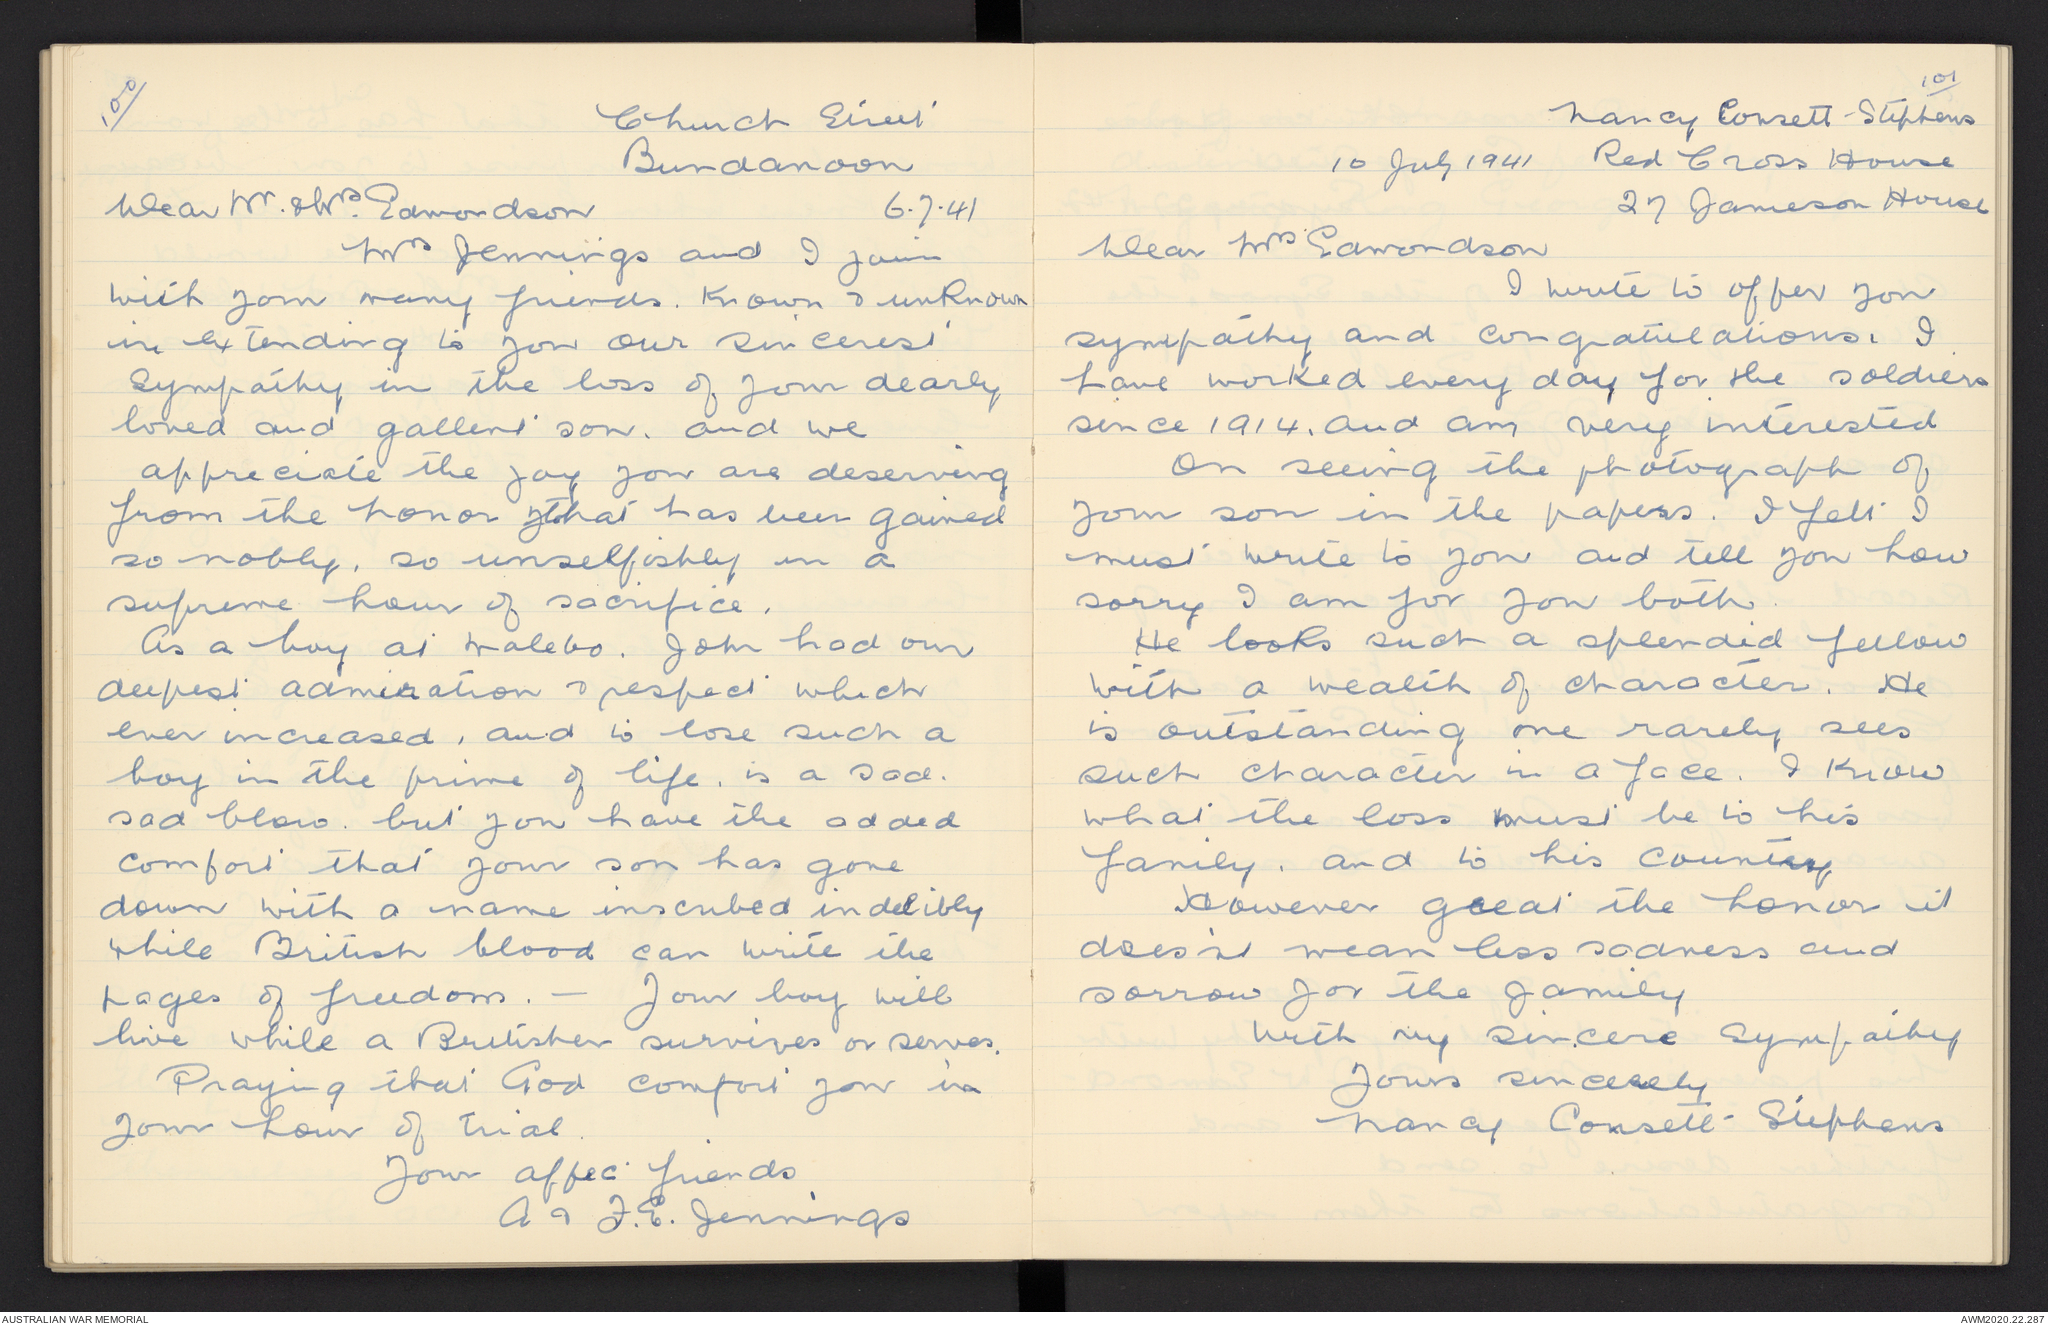 100
Church Street
Bundanoon
Dear Mr. & Mrs. Edmondson 6.7.41
Mrs Jennings and I join
with your many friends. Known & unknown
in extending to you our sincerest
sympathy in the loss of your dearly
loved and gallent son. and we
appreciate the joy you are deserving
from the honor that has been gained
so nobly, so unselfishly in a
supreme hour of sacrifice.
As a boy at . John had our
deepest admiration & respect which
ever increased, and to lose such a
boy in the prime of life, is a sad.
sad blow. but you have the added
comfort that your son has gone
down with a name inscribed indelibly
while British blood can write the
pages of freedom. — Your boy will
live while a Britisher survives or serves.
Praying that God comfort you in
your hour of trial.
Your affec friends
A & F.E. Jennings
101
Nancy Consett-Stephens
10 July 1941 Red Cross House
27 Jameson House
Dear Mrs Edmondson
I write to offer you
sympathy and congratulations. I
have worked every day for the soldiers
since 1914. and am very interested
On seeing the photograph of
your son in the papers. I felt I
must write to you and tell you how
sorry I am for you both.
He looks such a splendid fellow
with a wealth of character. He
is outstanding one rarely sees
such character in a face. I know
what the loss must be to his
family. and to his country
However great the honor it
does'nt mean less sadness and
sorrow for the family
With my sincere sympathy
Yours sincerely
Nancy Consett-Stephens
AUSTRALIAN WAR MEMORIAL
AWM2020.22.287